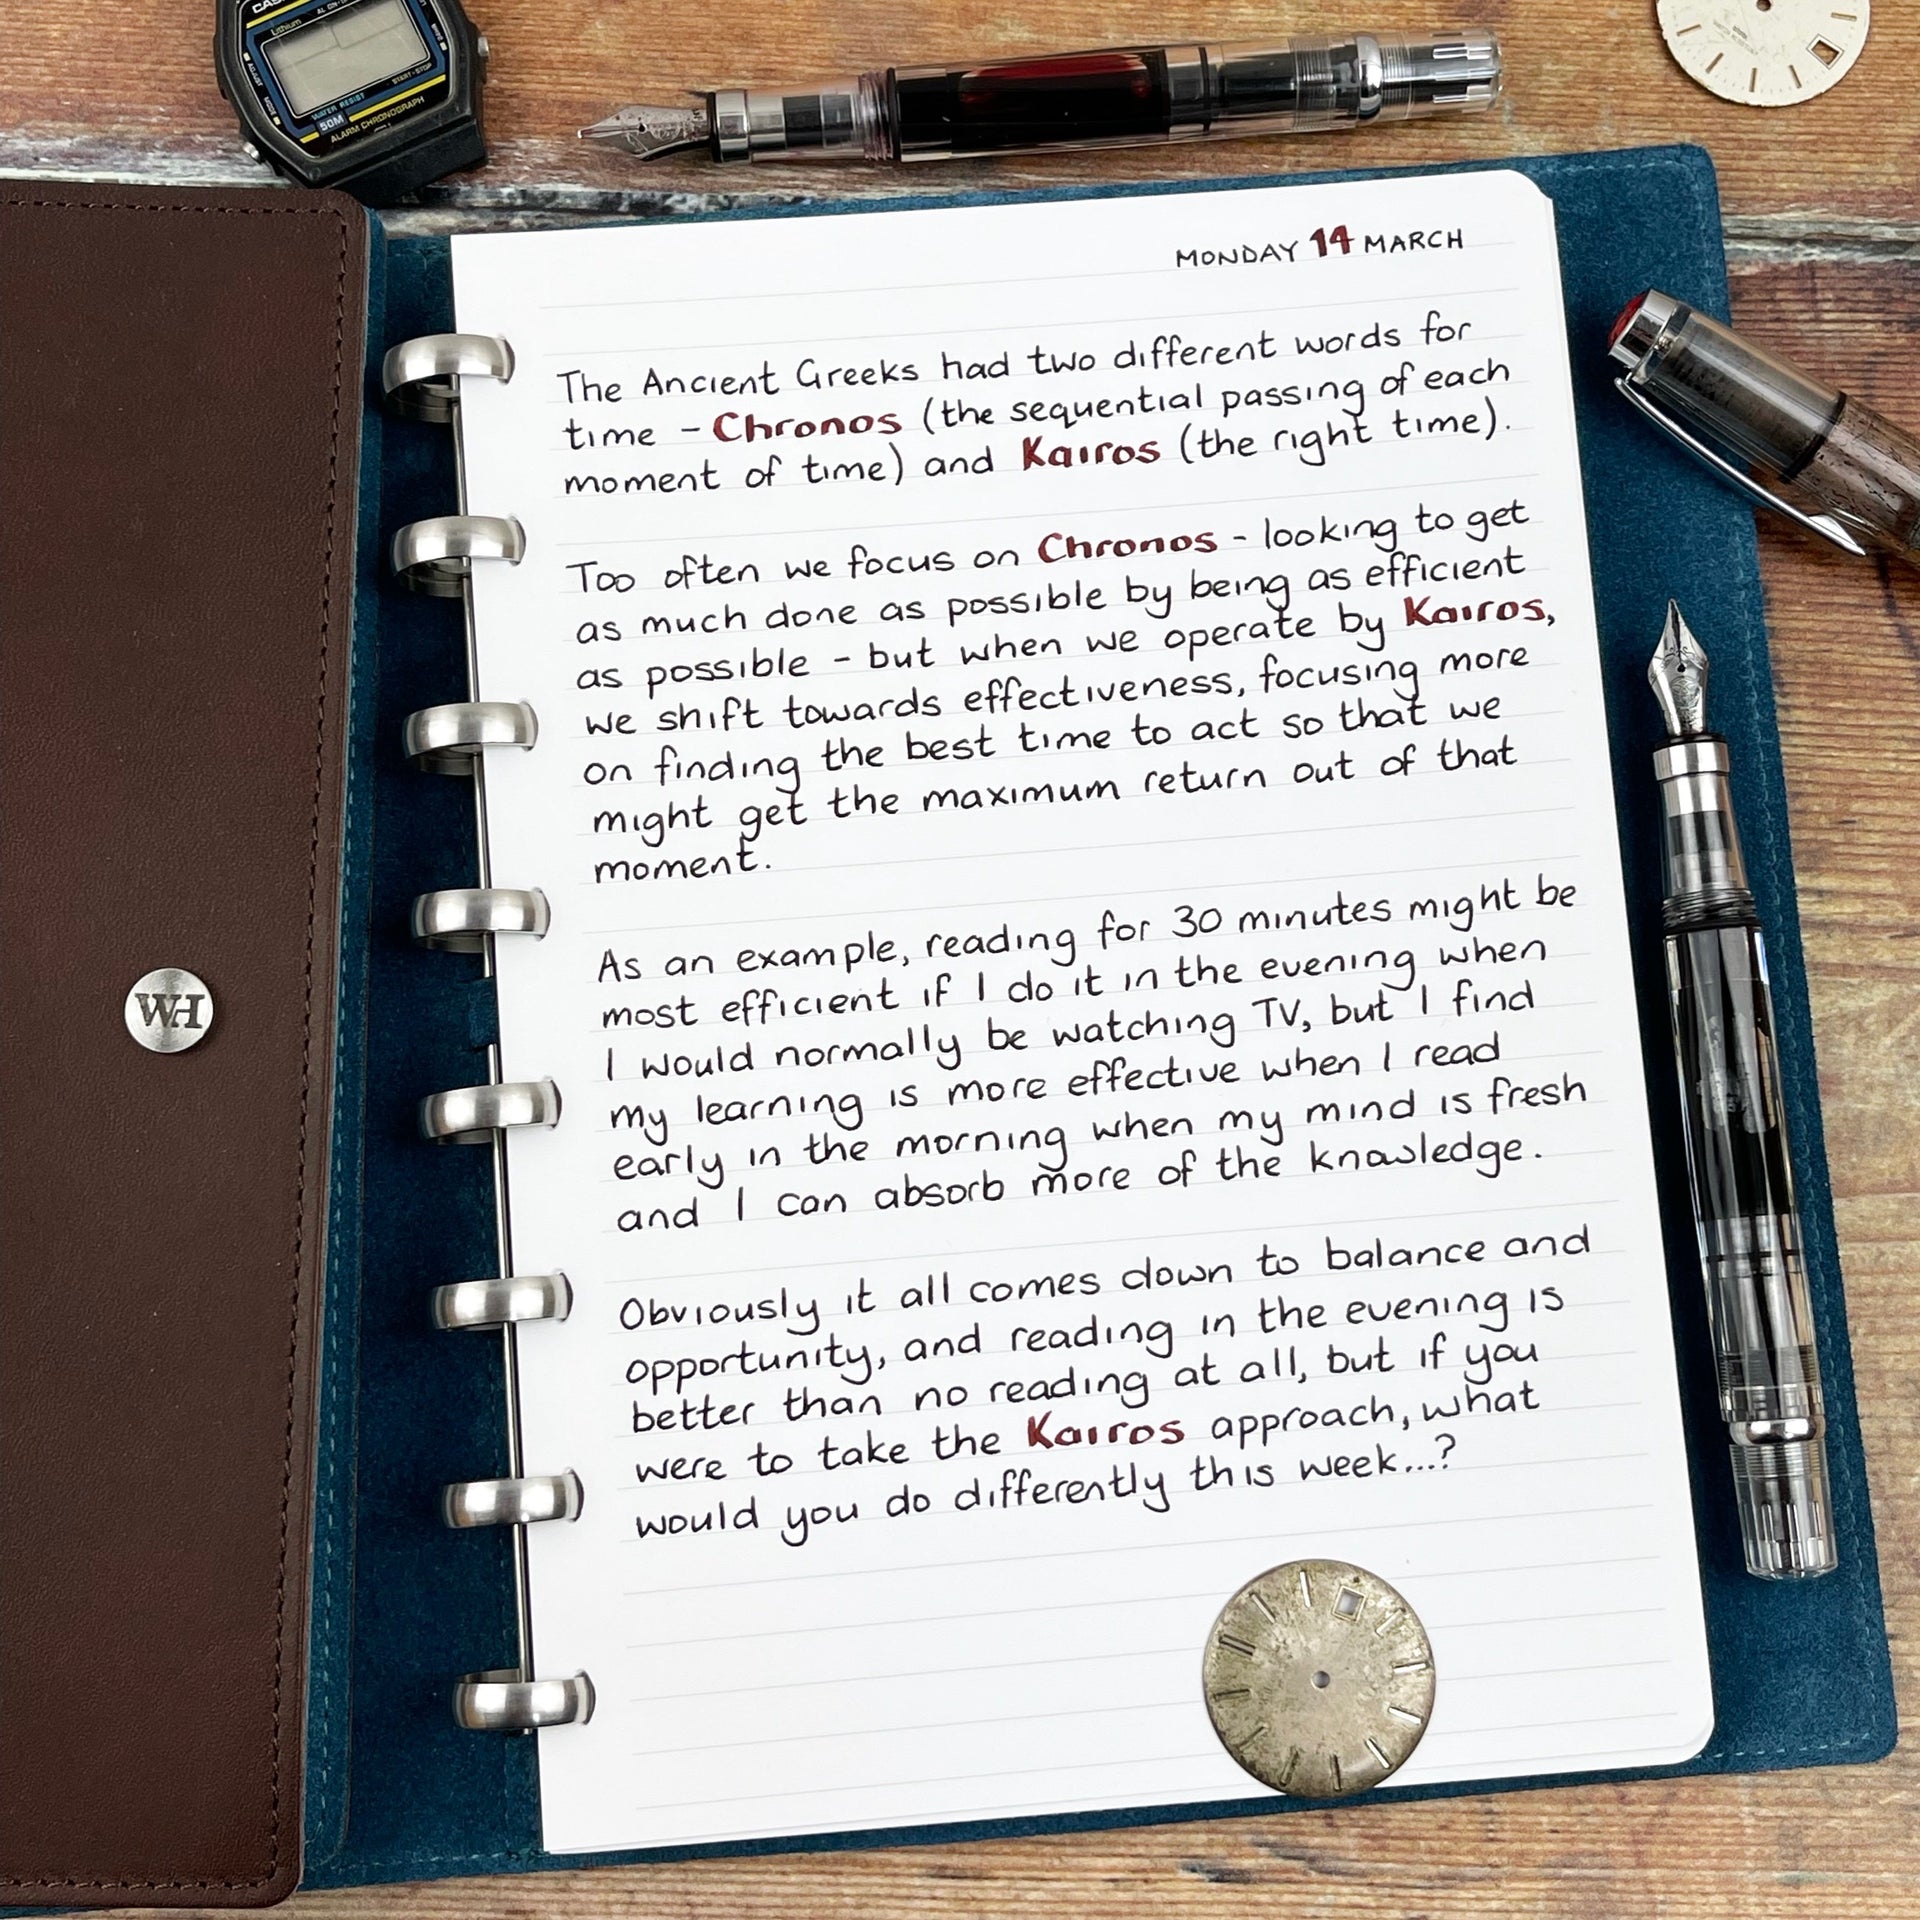 CASIO
Lithium
WATER RESIST
50M
ALARM CHRONOGRAPH
START-STOP
ADJUST
MODE
MONDAY 14 MARCH
The Ancient Greeks had two different words for
time - Chronos (the sequential passing of each
moment of time) and Kairos (the right time).
Too often we focus on Chronos - looking to get
as much done as possible by being as efficient
as possible - but when we operate by Kairos,
we shift towards effectiveness, focusing more
on finding the best time to act so that we
might get the maximum return out of that
moment.
As an example, reading for 30 minutes might be
most efficient if I do it in the evening when
I would normally be watching TV, but I find
my learning is more effective when I read
early in the morning when my mind is fresh
and I can absorb more of the knowledge.
Obviously it all comes down to balance and
opportunity, and reading in the evening is
better than no reading at all, but if you
were to take the Kairos approach, what
would you do differently this week...?
WH